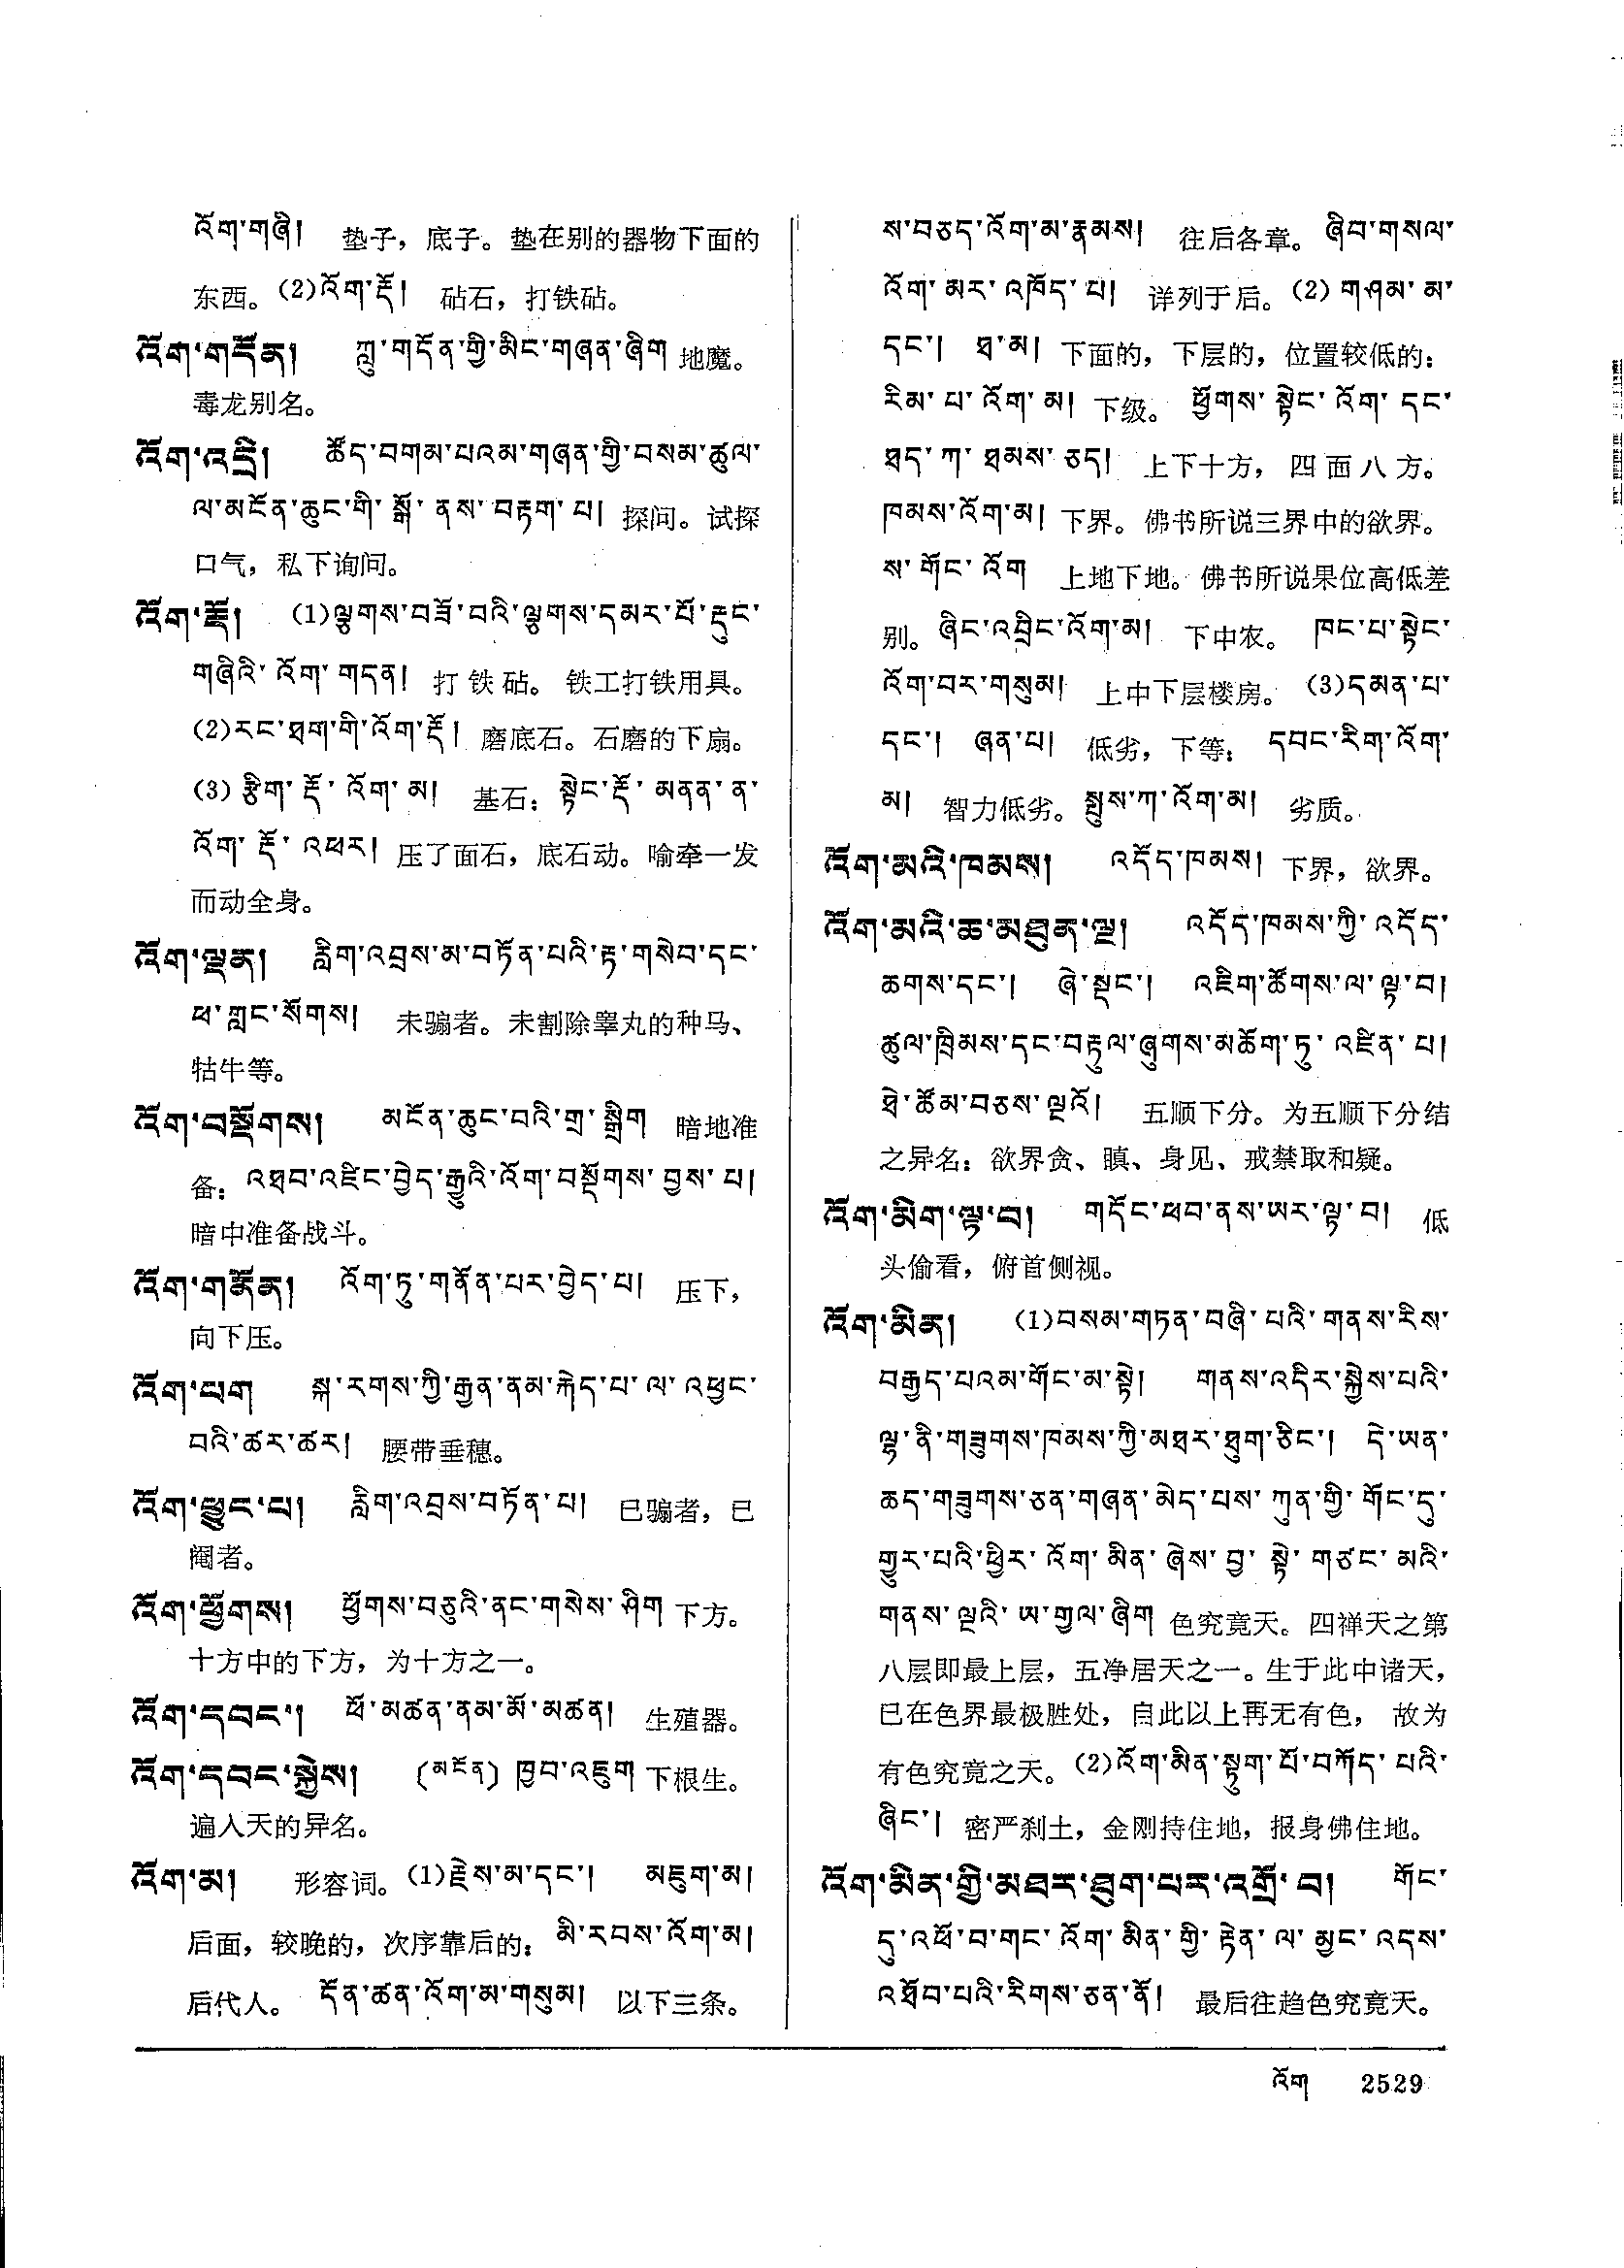 འོག་གཞི། 垫子，底子。垫在别的器物下面的
东西。(2)འོག་རྡོ། 砧石，打铁砧。
འོག་གདོན། ཀླུ་གདོན་གྱི་མིང་གཞན་ཞིག 地魔。
毒龙别名。
འོག་འདྲི། ཚོད་བགམ་པའམ་གཞན་གྱི་བསམ་ཚུལ་
ལ་མངོན་ཆུང་གི་སྒོ་ནས་བརྟག་པ། 探问。试探
口气，私下询问。
འོག་རྡོ། (1)ལྕགས་བཟོ་བའི་ལྕགས་དམར་པོ་རྡུང་
གཞིའི་འོག་གདན། 打铁砧。铁工打铁用具。
(2)རང་ཐག་གི་འོག་རྡོ། 磨底石。石磨的下扇。
(3)རྩིག་རྡོ་འོག་མ། 基石：སྟེང་རྡོ་མནན་ན་
འོག་རྡོ་འཕར། 压了面石，底石动。喻牵一发
而动全身。
འོག་ལྡན། རླིག་འབྲས་མ་བཏོན་པའི་རྟ་གསེབ་དང་
ཕ་གླང་སོགས། 未骟者。未割除睾丸的种马、
牯牛等。
འོག་བསྡོགས། མངོན་ཆུང་བའི་གྲ་སྒྲིག 暗地准
备：འཐབ་འཛིང་བྱེད་རྒྱུའི་འོག་བསྡོགས་བྱས་པ།
暗中准备战斗。
འོག་གནོན། འོག་ཏུ་གནོན་པར་བྱེད་པ། 压下，
向下压。
འོག་པག སྐ་རགས་ཀྱི་རྒྱན་ནམ་རྐེད་པ་ལ་འཕྱང་
བའི་ཚར་ཚར། 腰带垂穗。
འོག་ཕྱུང་པ། རླིག་འབྲས་བཏོན་པ། 已骟者，已
阉者。
འོག་ཕྱོགས། ཕྱོགས་བཅུའི་ནང་གསེས་ཤིག 下方。
十方中的下方，为十方之一。
འོག་དབང་། ཕོ་མཚན་ནམ་མོ་མཚན། 生殖器。
འོག་དབང་སྐྱེས། (མངོན) ཁྱབ་འཇུག 下根生。
遍入天的异名。
འོག་མ། 形容词。(1)རྗེས་མ་དང་། མཇུག་མ།
后面，较晚的，次序靠后的：མི་རབས་འོག་མ།
后代人。 དོན་ཚན་འོག་མ་གསུམ། 以下三条。
ས་བཅད་འོག་མ་རྣམས། 往后各章。ཞིབ་གསལ་
འོག་མར་འཁོད་པ། 详列于后。(2) གཤམ་མ་
དང་། ཐ་མ། 下面的，下层的，位置较低的：
རིམ་པ་འོག་མ། 下级。 ཕྱོགས་སྟེང་འོག་དང་
ཐད་ཀ་ཐམས་ཅད། 上下十方，四面八方。
ཁམས་འོག་མ། 下界。佛书所说三界中的欲界。
ས་གོང་འོག 上地下地。佛书所说果位高低差
别。ཞིང་འབྲིང་འོག་མ། 下中农。 ཁང་པ་སྟེང་
འོག་བར་གསུམ། 上中下层楼房。(3)དམན་པ་
དང་། ཞན་པ། 低劣，下等：དབང་རིག་འོག་
མ། 智力低劣。སྤུས་ཀ་འོག་མ། 劣质。
འོག་མའི་ཁམས། འདོད་ཁམས། 下界，欲界。
འོག་མའི་ཆ་མཐུན་ལྔ། འདོད་ཁམས་ཀྱི་འདོད་
ཆགས་དང་། ཞེ་སྡང་། འཇིག་ཚོགས་ལ་ལྟ་བ།
ཚུལ་ཁྲིམས་དང་བརྟུལ་ཞུགས་མཆོག་ཏུ་འཛིན་པ།
ཐེ་ཚོམ་བཅས་ལྔའོ། 五顺下分。为五顺下分结
之异名：欲界贪、瞋、身见、戒禁取和疑。
འོག་མིག་ལྟ་བ། གདོང་ཕབ་ནས་ཡར་ལྟ་བ། 低
头偷看，俯首侧视。
འོག་མིན། (1)བསམ་གཏན་བཞི་པའི་གནས་རིས་
བརྒྱད་པའམ་གོང་མ་སྟེ། གནས་འདིར་སྐྱེས་པའི་
ལྷ་ནི་གཟུགས་ཁམས་ཀྱི་མཐར་ཐུག་ཅིང་། དེ་ཡན་
ཆད་གཟུགས་ཅན་གཞན་མེད་པས་ཀུན་གྱི་གོང་དུ་
གྱུར་པའི་ཕྱིར་འོག་མིན་ཞེས་བྱ་སྟེ་གཙང་མའི་
གནས་ལྔའི་ཨ་གྱལ་ཞིག 色究竟天。四禅天之第
八层即最上层，五净居天之一。生于此中诸天，
已在色界最极胜处，自此以上再无有色，故为
有色究竟之天。(2)འོག་མིན་སྟུག་པོ་བཀོད་པའི་
ཞིང་། 密严刹土，金刚持住地，报身佛住地。
འོག་མིན་གྱི་མཐར་ཐུག་པར་འགྲོ་བ། གོང་
དུ་འཕོ་བ་གང་འོག་མིན་གྱི་རྟེན་ལ་མྱང་འདས་
འཐོབ་པའི་རིགས་ཅན་ནོ། 最后往趋色究竟天。
འོག 2529